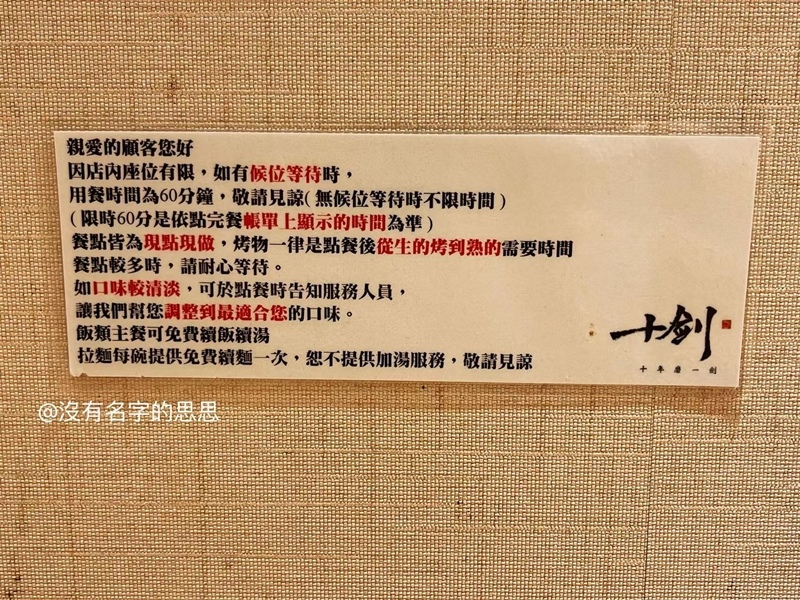 親愛的顧客您好
因店內座位有限，如有候位等待時，
用餐時間為60分鐘，敬請見諒(無候位等待時不限時間)
(限時60分是依點完餐帳單上顯示的時間為準)
餐點皆為現點現做，烤物一律是點餐後從生的烤到熟的需要時間
餐點較多時，請耐心等待。
如口味較清淡，可於點餐時告知服務人員，
讓我們幫您調整到最適合您的口味。
飯類主餐可免費續飯續湯
拉麵每碗提供免費續麵一次，恕不提供加湯服務，敬請見諒
十剑
十年磨一劍
@沒有名字的思思